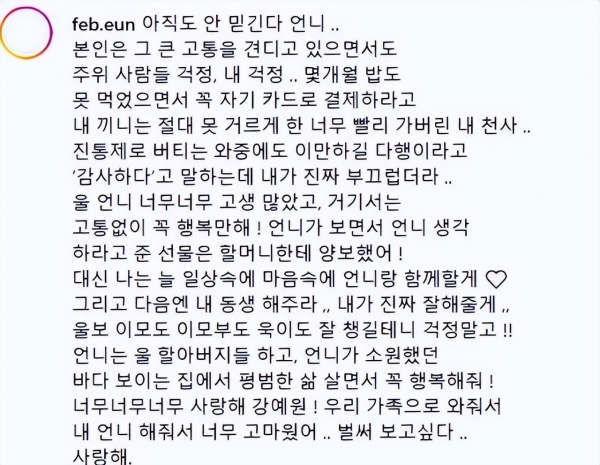 feb.eun 아직도 안 믿긴다 언니 ..
본인은 그 큰 고통을 견디고 있으면서도
주위 사람들 걱정, 내 걱정 .. 몇개월 밥도
못 먹었으면서 꼭 자기 카드로 결제하라고
내 끼니는 절대 못 거르게 한 너무 빨리 가버린 내 천사 ..
진통제로 버티는 와중에도 이만하길 다행이라고
‘감사하다’고 말하는데 내가 진짜 부끄럽더라 ..
울 언니 너무너무 고생 많았고, 거기서는
고통없이 꼭 행복만해 ! 언니가 보면서 언니 생각
하라고 준 선물은 할머니한테 양보했어 !
대신 나는 늘 일상속에 마음속에 언니랑 함께할게 ♡
그리고 다음엔 내 동생 해주라 ,, 내가 진짜 잘해줄게 ,,
울보 이모도 이모부도 욱이도 잘 챙길테니 걱정말고 !!
언니는 울 할아버지들 하고, 언니가 소원했던
바다 보이는 집에서 평범한 삶 살면서 꼭 행복해줘 !
너무너무너무 사랑해 강예원 ! 우리 가족으로 와줘서
내 언니 해줘서 너무 고마웠어 .. 벌써 보고싶다 ..
사랑해.